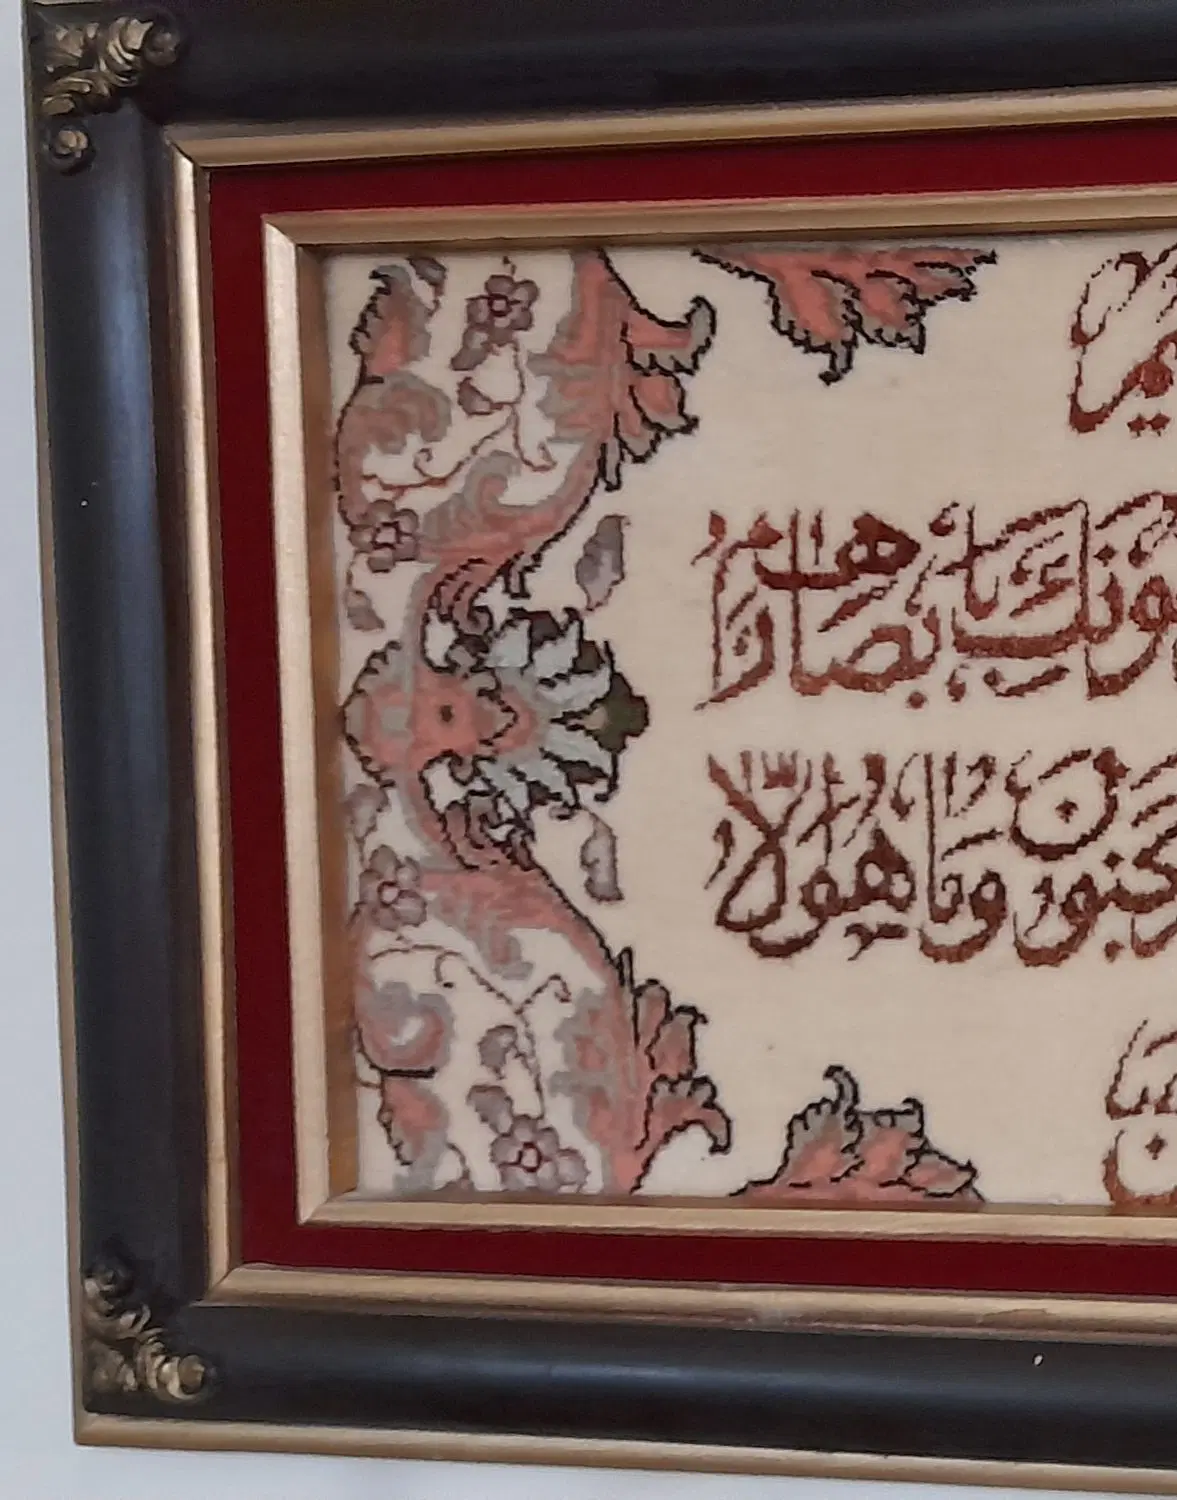 يم
ونك بأبصارهم
مجنون وما هو إلا
ين